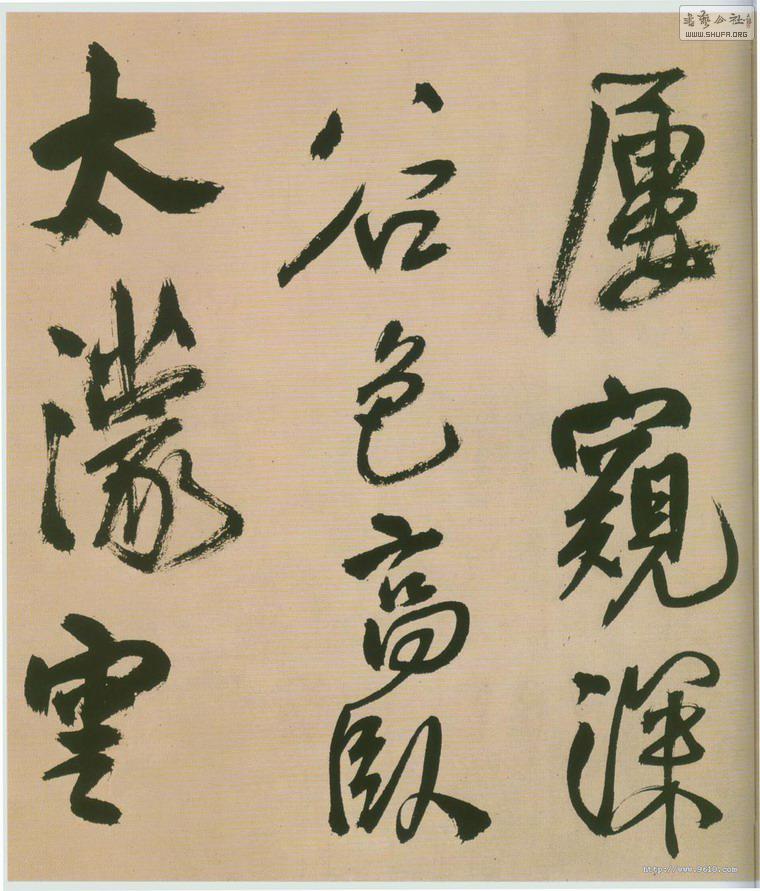 屢窺深
谷色高臥
太濛雲
書藝公社
WWW.SHUFA.ORG
http://www.9610.com